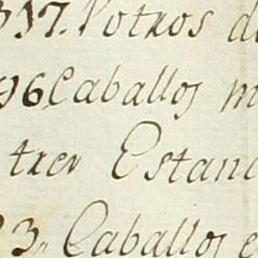 317. Potros d
96 Caballos m
tres Estanc
3,, Caballos e